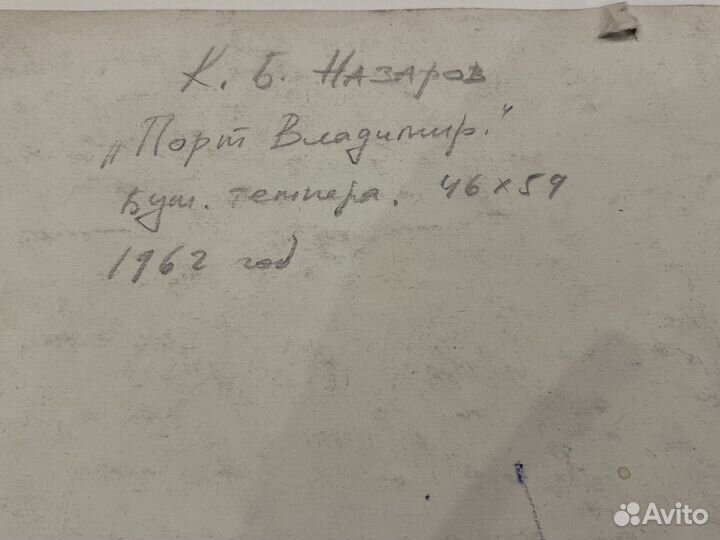 К. Б. Назаров
„Порт Владимир."
Бум. темпера. 46х59
1962 год
Avito